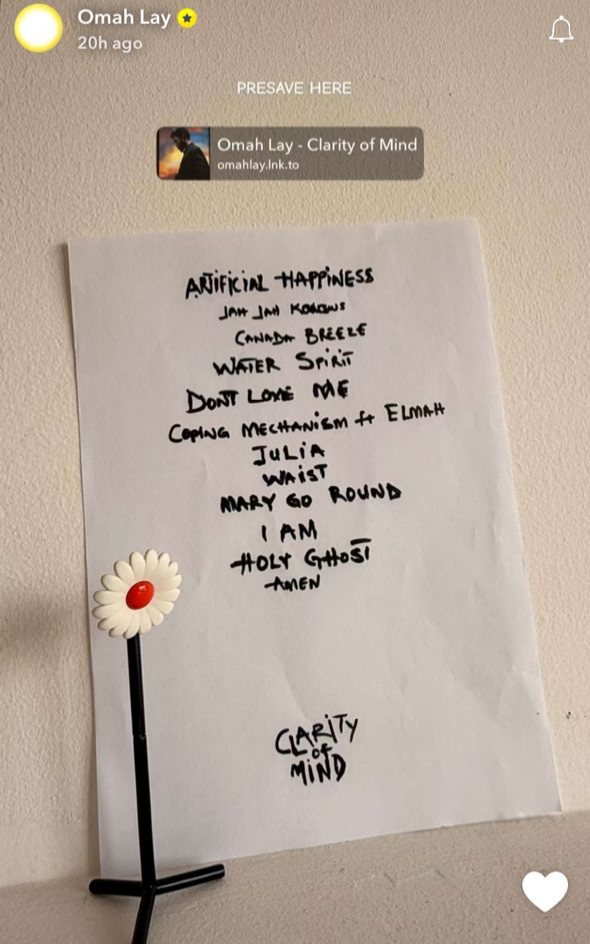 Omah Lay
20h ago
PRESAVE HERE
Omah Lay - Clarity of Mind
omahlay.lnk.to
ARTIFICIAL HAPPINESS
JAH JAH KNOWS
CANADA BREEZE
WATER SPIRIT
DONT LOVE ME
COPING MECHANISM ft ELMAH
JULIA
WAIST
MARY GO ROUND
I AM
HOLY GHOST
AMEN
CLARITY
OF
MIND